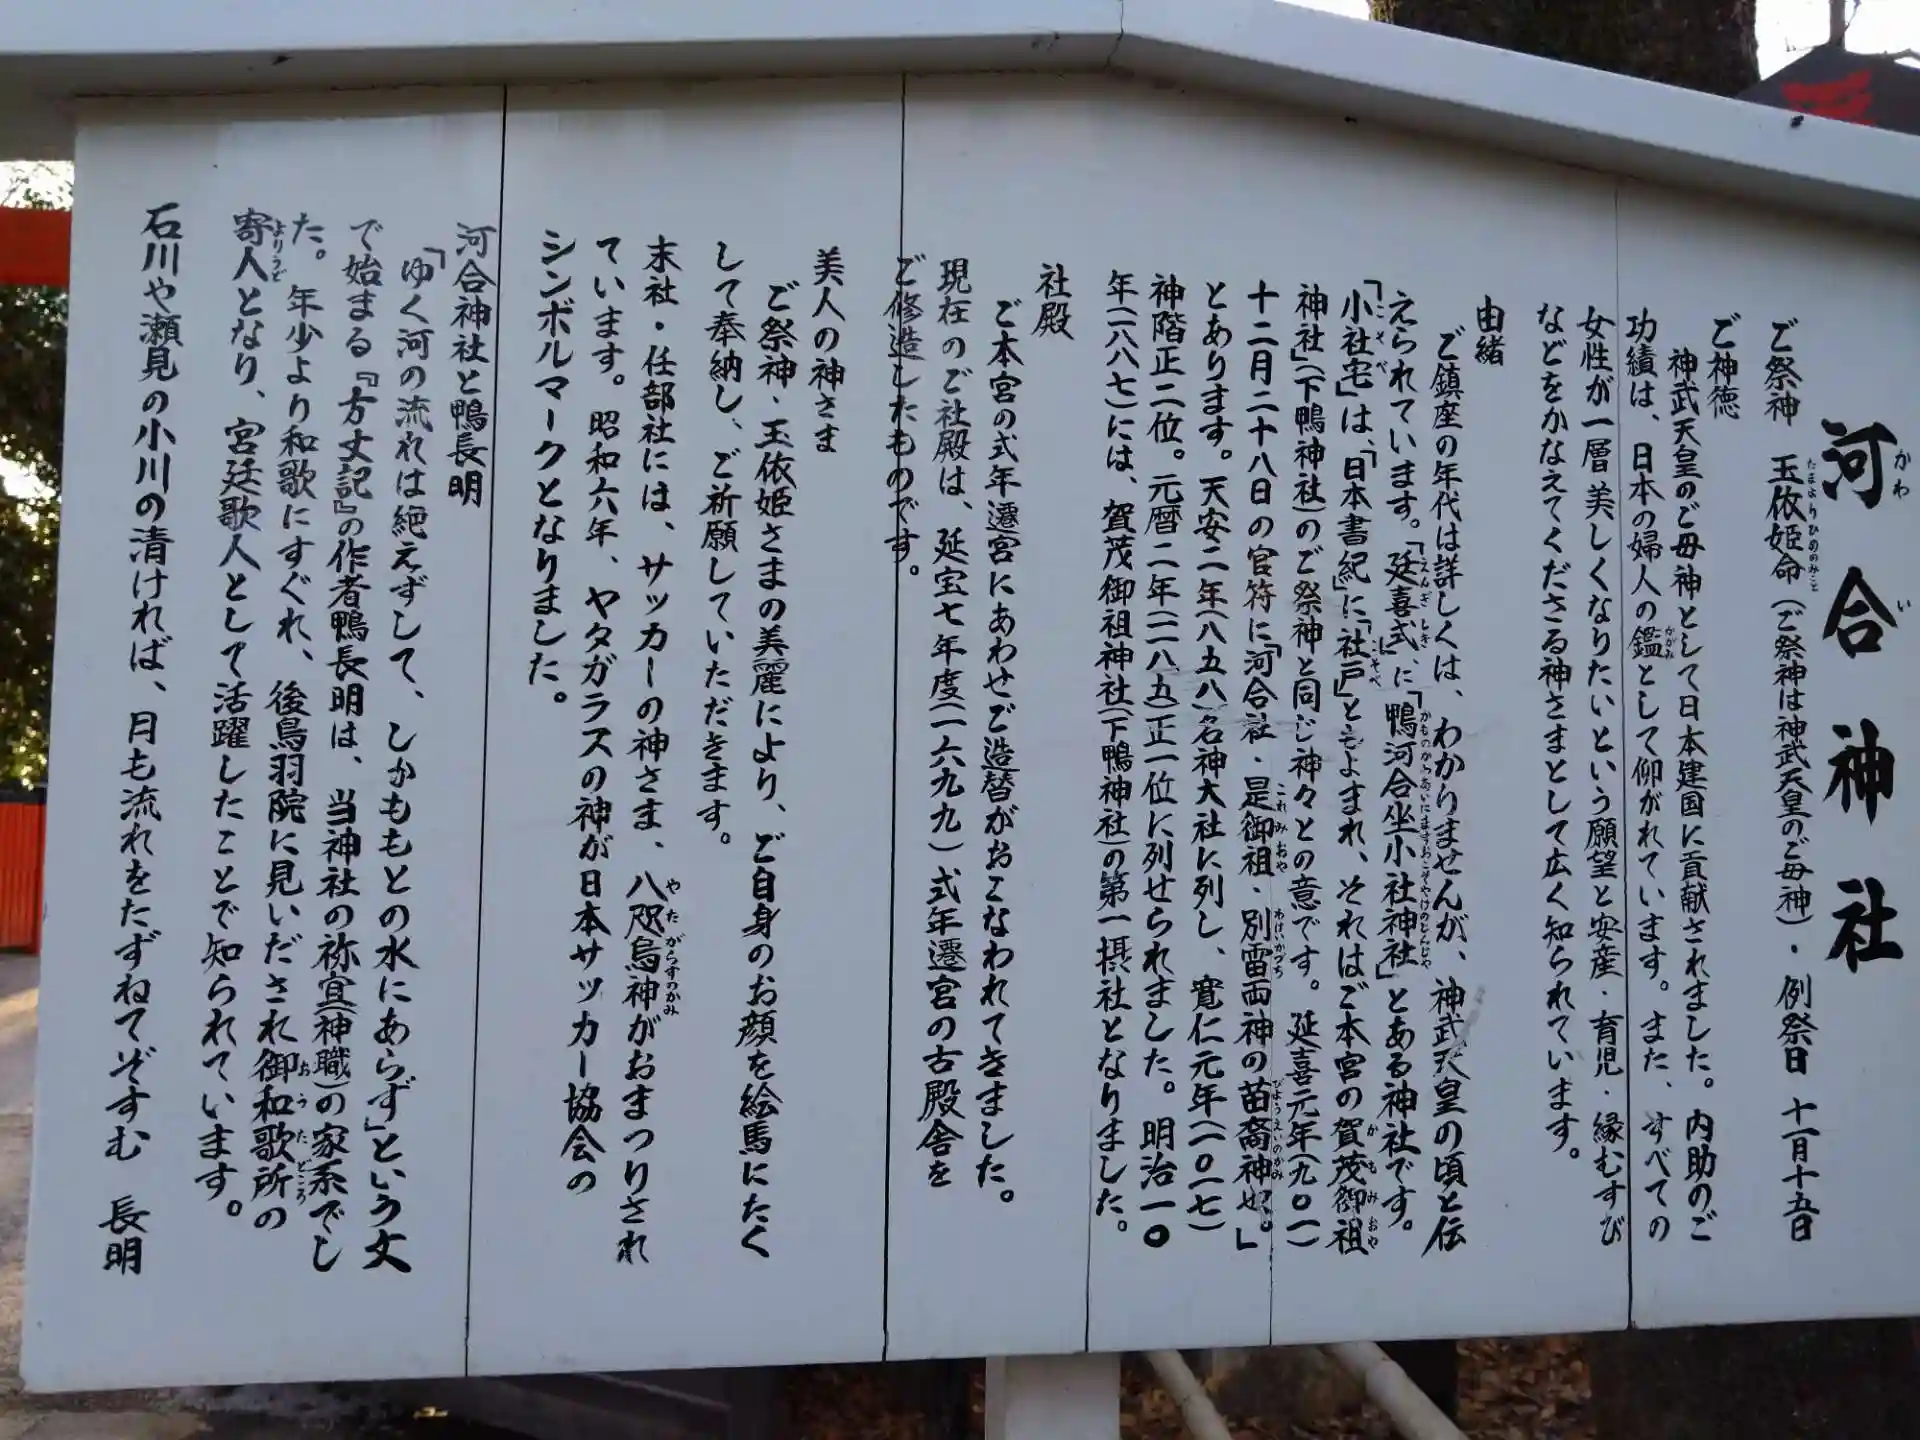 河合神社
ご祭神 玉依姫命(ご祭神は神武天皇のご母神)・例祭日 十一月十五日
ご神徳
神武天皇のご母神として日本建国に貢献されました。内助のご
功績は、日本の婦人の鑑として仰がれています。また、すべての
女性が一層美しくなりたいという願望と安産・育児・縁むすび
などをかなえてくださる神さまとして広く知られています。
由緒
ご鎮座の年代は詳しくは、わかりませんが、神武天皇の頃と伝
えられています。「延喜式」に「鴨河合坐小社神社」とある神社です。
「小社宅」は、「日本書紀」に「社戸」ともよまれ、それはご本宮の賀茂御祖
神社」(下鴨神社)のご祭神と同じ神々との意です。延喜元年(九〇一)
十二月二十八日の官符に「河合社・是御祖・別雷両神の苗裔神也。」
とあります。天安二年(八五八)名神大社に列し、寛仁元年(一〇一七)
神階正二位。元暦二年(一一八五)正一位に列せられました。明治一〇
年(一八七七)には、賀茂御祖神社(下鴨神社)の第一摂社となりました。
社殿
ご本宮の式年遷宮にあわせご造替がおこなわれてきました。
現在のご社殿は、延宝七年度(一六七九)式年遷宮の古殿舎を
ご修造したものです。
美人の神さま
ご祭神・玉依姫さまの美麗により、ご自身のお顔を絵馬にたく
して奉納し、ご祈願していただきます。
末社・任部社には、サッカーの神さま、八咫烏神がおまつりされ
ています。昭和六年、ヤタガラスの神が日本サッカー協会の
シンボルマークとなりました。
河合神社と鴨長明
「ゆく河の流れは絶えずして、しかももとの水にあらず」という文
で始まる『方丈記』の作者鴨長明は、当神社の祢宜(神職)の家系でし
た。年少より和歌にすぐれ、後鳥羽院に見いだされ御和歌所の
寄人となり、宮廷歌人として活躍したことで知られています。
石川や瀬見の小川の清ければ、月も流れをたずねてぞすむ 長明